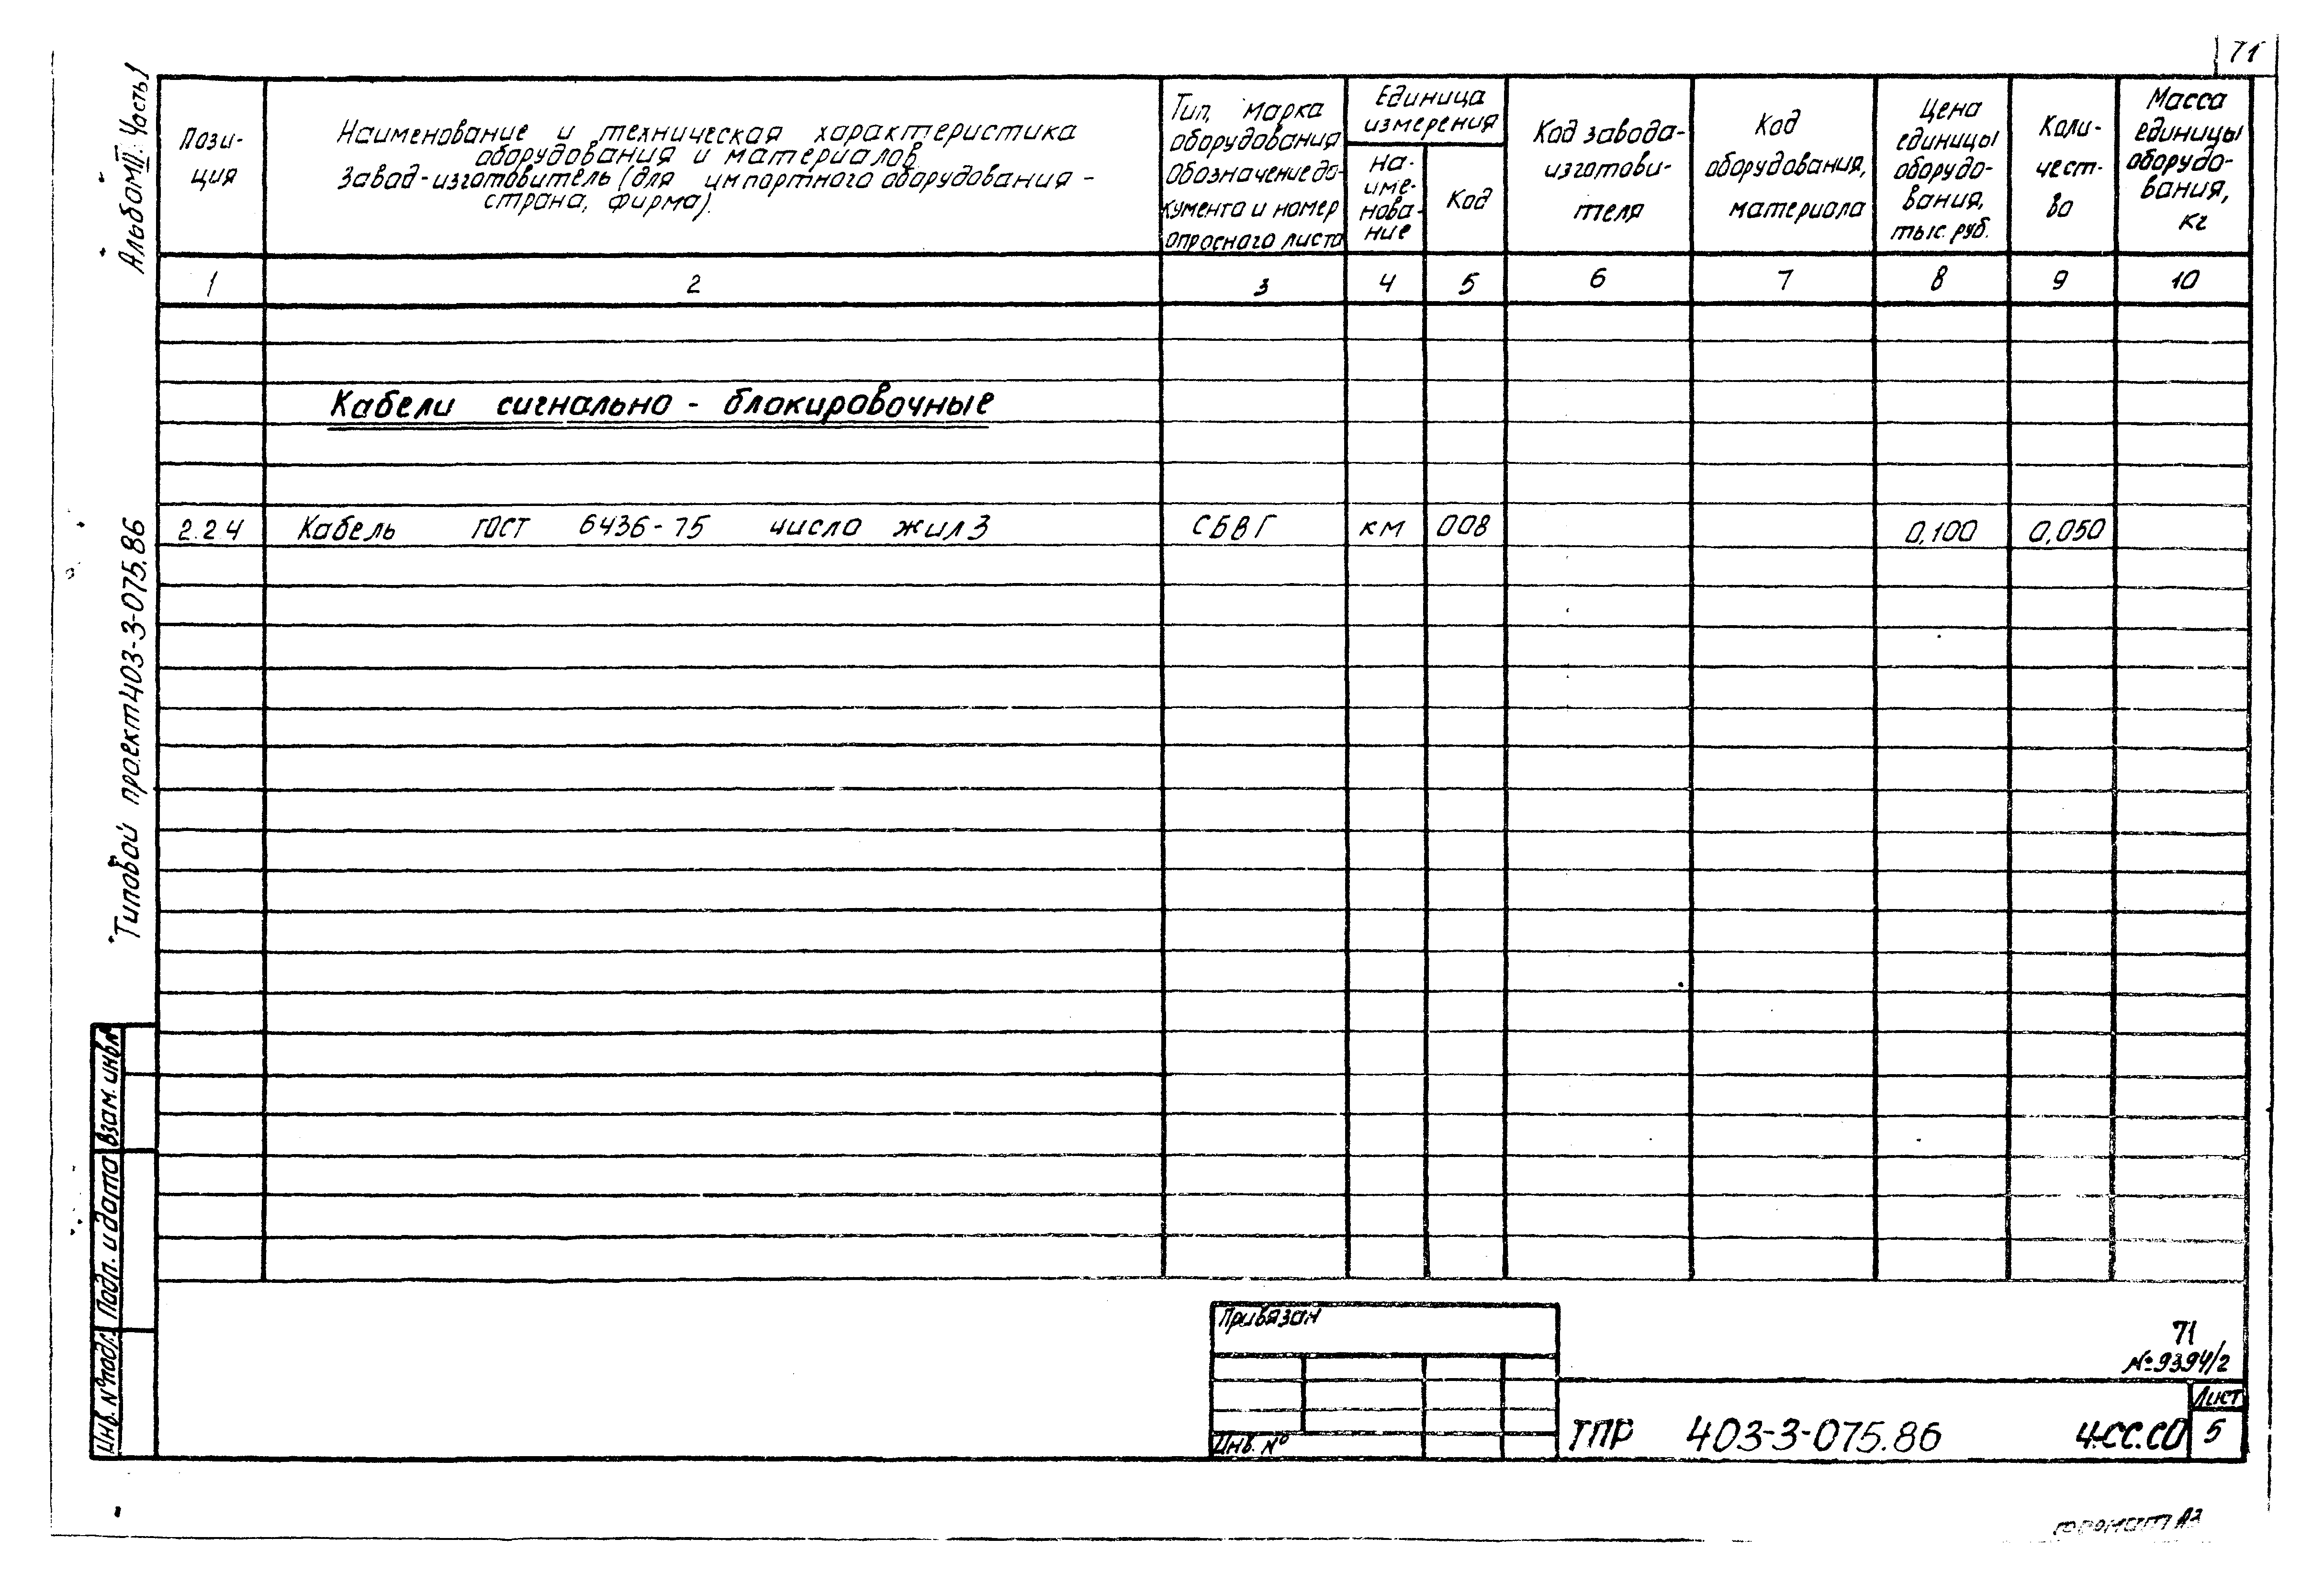 71
Альбом III. Часть 1
Типовой проект 403-3-075.86
Пози-
ция
Наименование и техническая характеристика
оборудования и материалов
Завод-изготовитель (для импортного оборудования -
страна, фирма).
Тип, марка
оборудования
Обозначение до-
кумента и номер
опросного листа
Единица
измерения
на-
име-
нова-
ние
Код
Код завода-
изготови-
теля
Код
оборудования,
материала
Цена
единицы
оборудо-
вания,
тыс. руб.
Коли-
чест-
во
Масса
единицы
оборудо-
вания,
кг
1 2 3 4 5 6 7 8 9 10
Кабели сигнально - блокировочные
2.2.4 Кабель ГОСТ 6436-75 число жил 3 СБВГ км 008 0,100 0,050
Взам. инв.№
Подп. и дата
Инв. № подл.
Привязан
Инв. №
71
№9394/2
ТПР 403-3-075.86 4-СС.СО
Лист
5
Формат А3